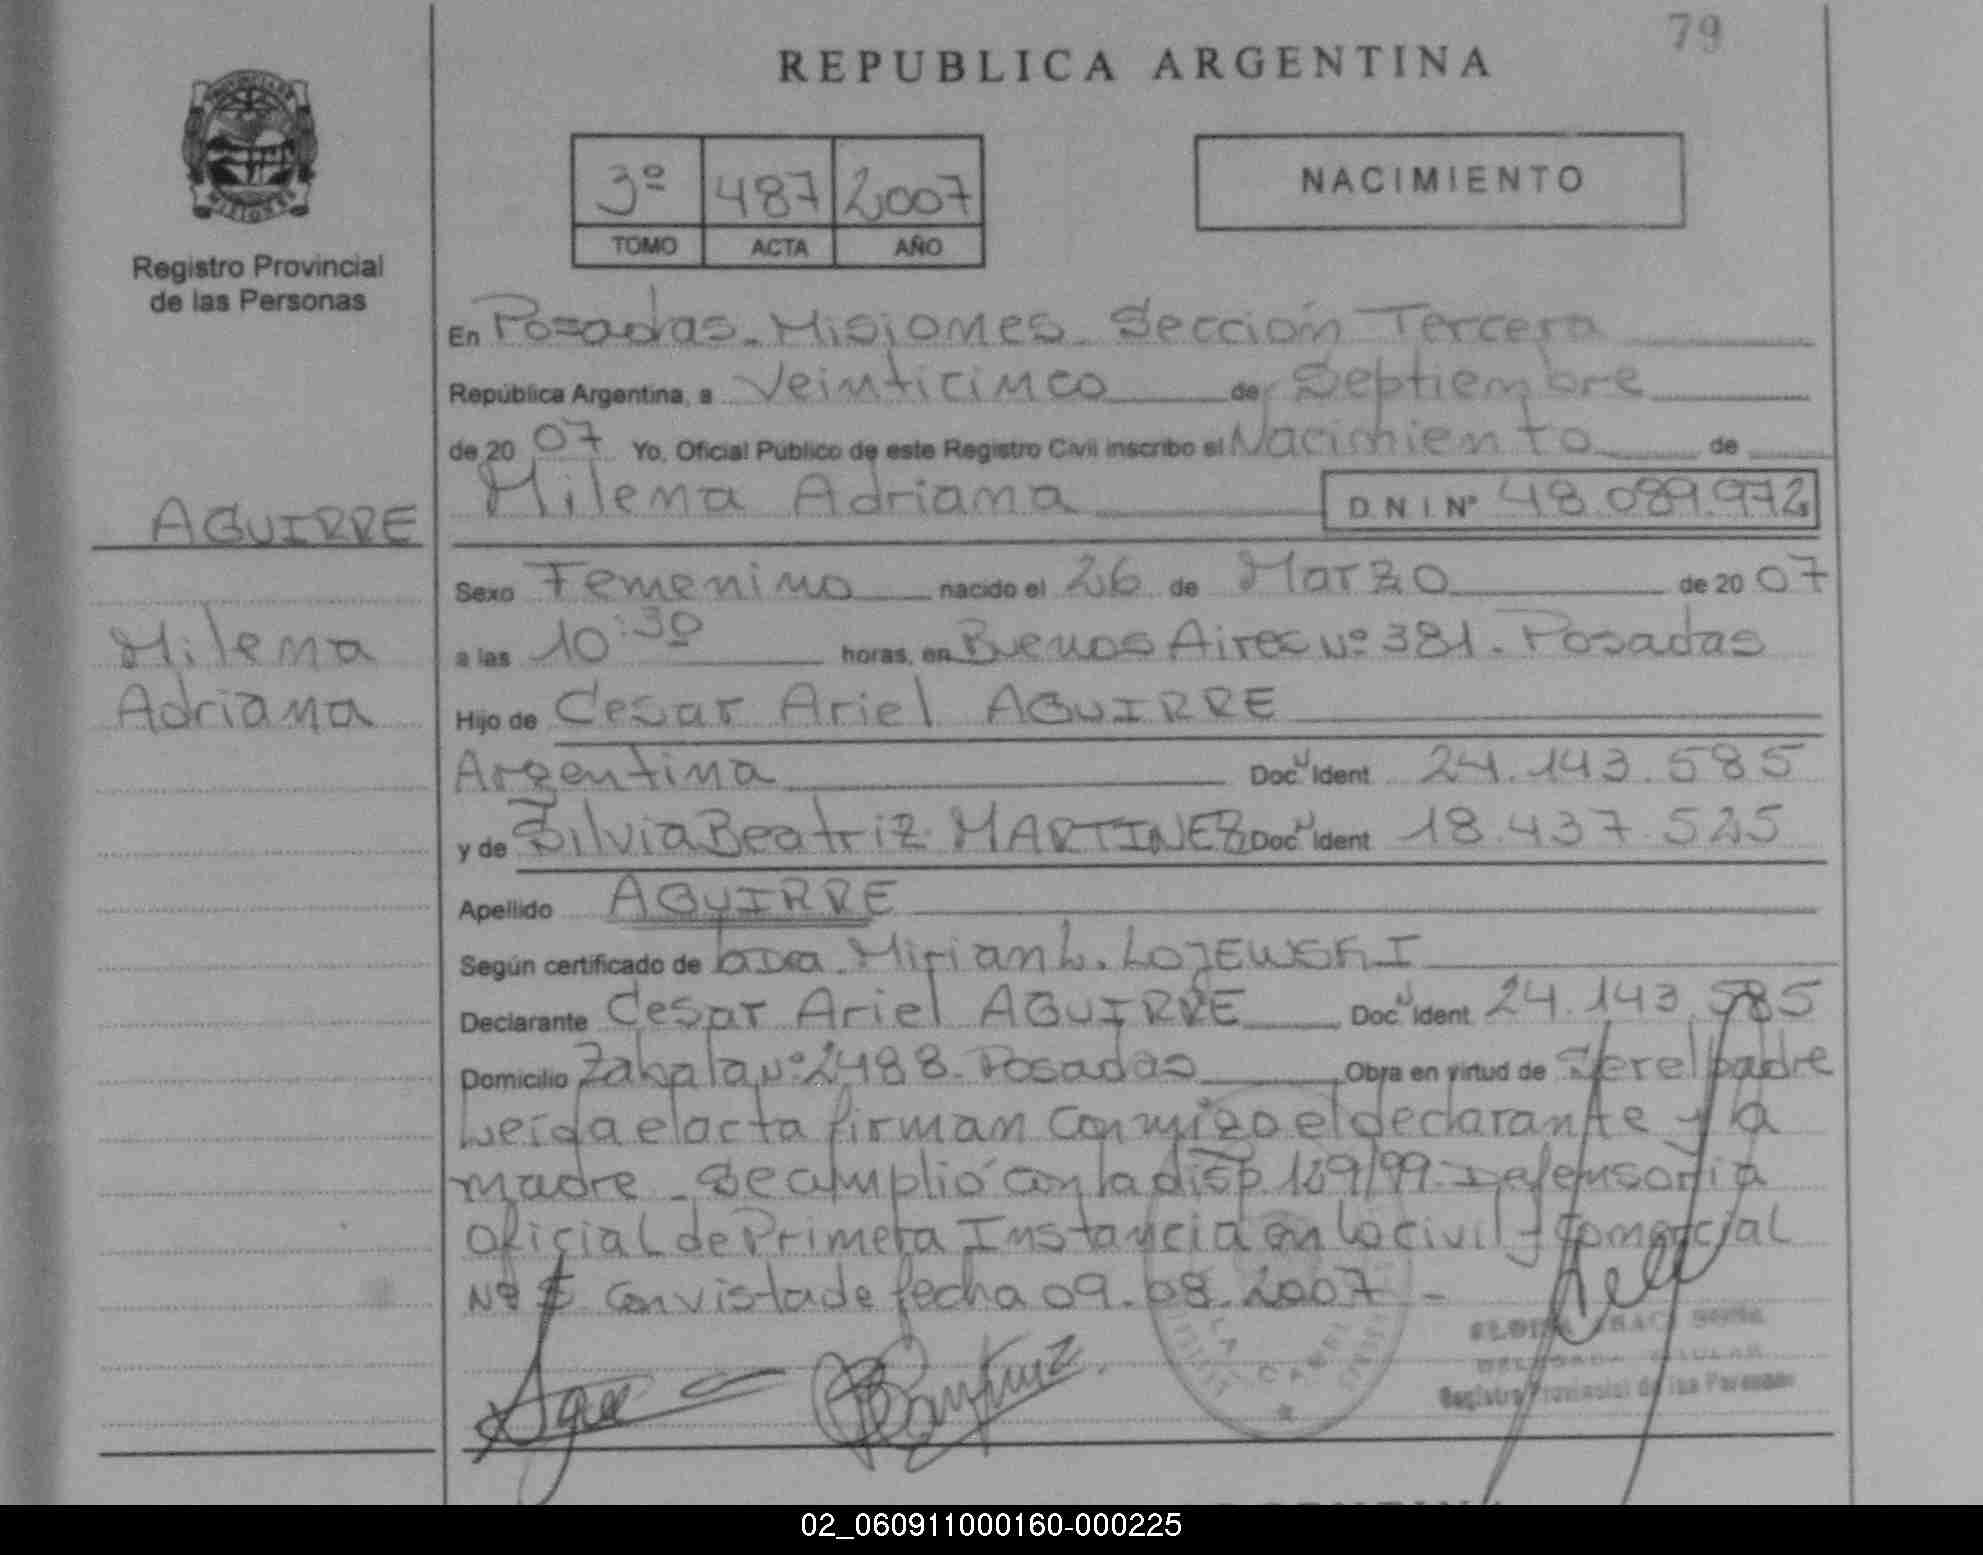 79
REPUBLICA ARGENTINA
3º 487 2007
TOMO ACTA AÑO
NACIMIENTO
Registro Provincial
de las Personas
En Posadas - Misiones - Sección Tercera
República Argentina, a Veinticinco de Septiembre
de 20 07 Yo, Oficial Público de este Registro Civil inscribo el Nacimiento de
Milena Adriana D.N.I. Nº 48.089.972
AGUIRRE
Milena
Adriana
Sexo Femenino nacido el 26 de Marzo de 20 07
a las 10:30 horas, en Buenos Aires Nº 381. Posadas
Hijo de Cesar Ariel AGUIRRE
Argentina Doc. Ident 24.143.585
y de Silvia Beatriz MARTINEZ Doc. Ident 18.437.525
Apellido AGUIRRE
Según certificado de Dra. Mirian L. LOJEWSKI
Declarante Cesar Ariel AGUIRRE Doc. Ident 24.143.585
Domicilio Zabala Nº 2488 - Posadas Obra en virtud de Ser el padre
Leída el acta firman conmigo el declarante y la
madre - Se cumplió con la disp. 169/99 - Defensoría
Oficial de Primera Instancia en lo civil y Comercial
Nº con vista de fecha 09.08.2007 -
Registro Provincial de las Personas
02_060911000160-000225